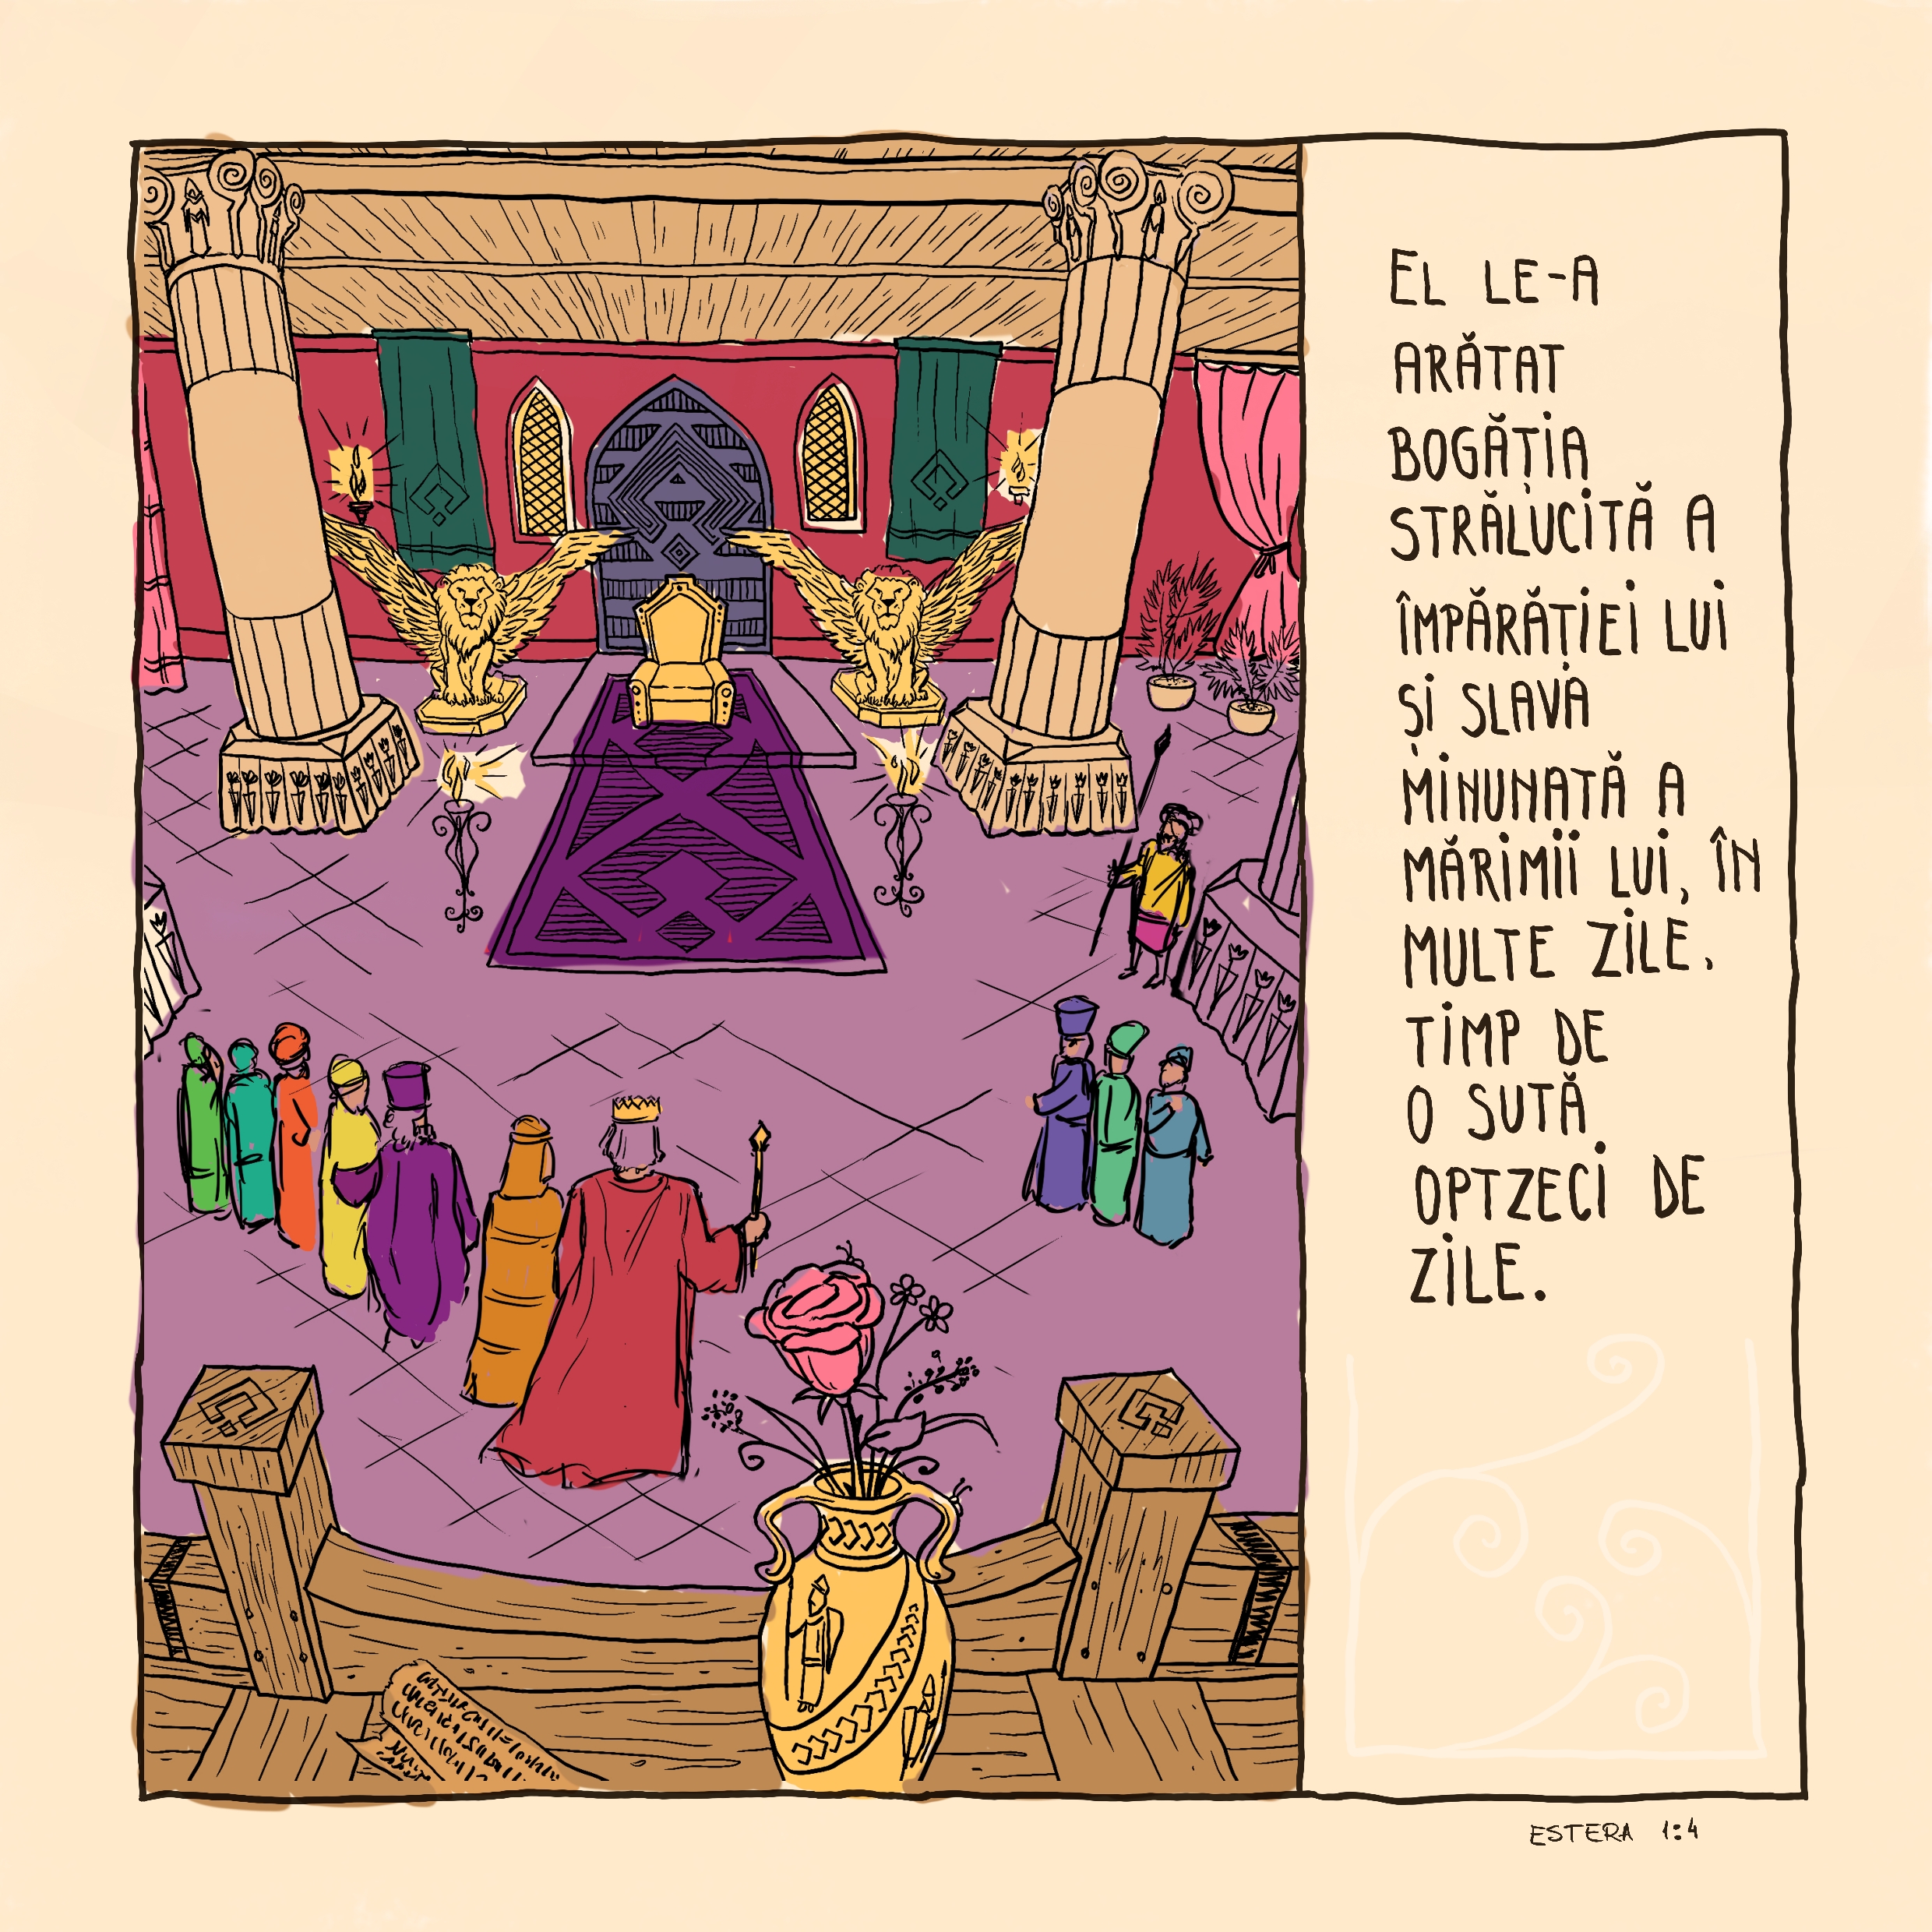 EL LE-A
ARĂTAT
BOGĂȚIA
STRĂLUCITĂ A
ÎMPĂRĂȚIEI LUI
ȘI SLAVA
MINUNATĂ A
MĂRIMII LUI, ÎN
MULTE ZILE,
TIMP DE
O SUTĂ
OPTZECI DE
ZILE.
ESTERA 1:4